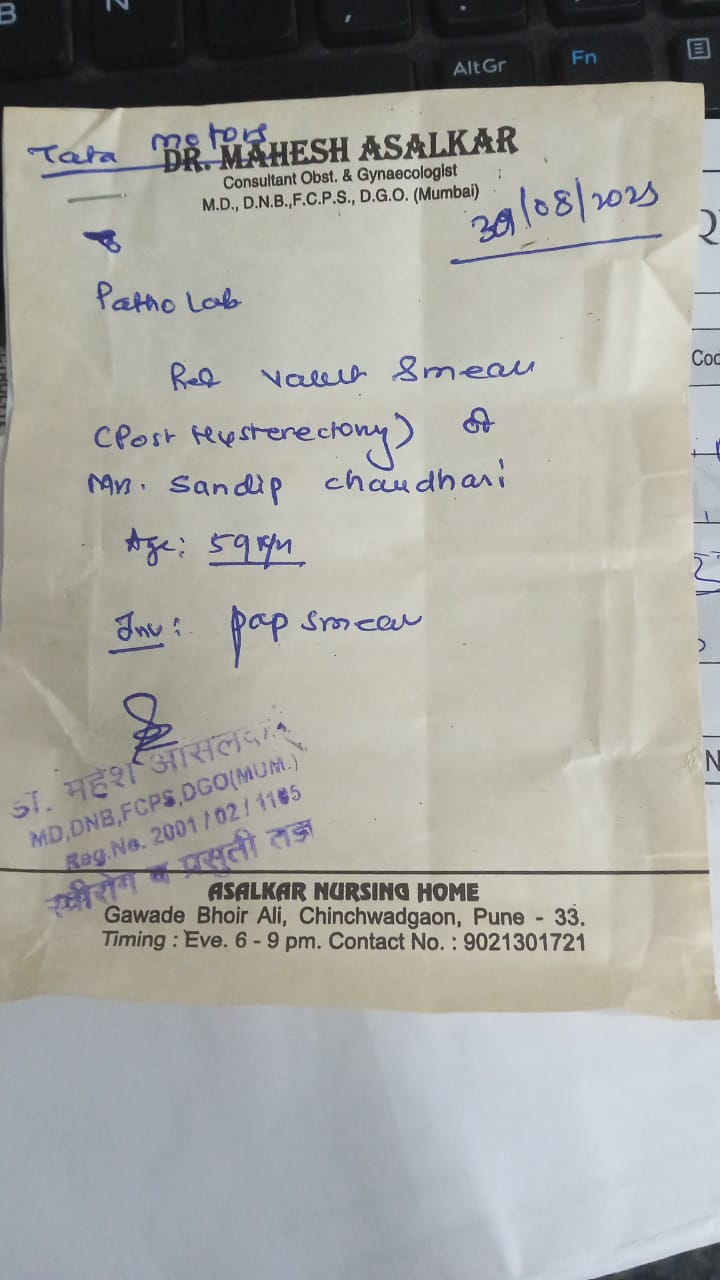 B N ,
AltGr Fn
Tata motors
DR. MAHESH ASALKAR
Consultant Obst. & Gynaecologist
M.D., D.N.B.,F.C.P.S., D.G.O. (Mumbai)
/08/2025
Patho Lab
Smear
(Post Hysterectomy) of
Sandip chaudhari
Age: 59 yrs
Inv: pap smear
डॉ. महेश आसलकर
MD,DNB,FCPS,DGO(MUM.)
Reg.No. 2001/02/1165
स्त्रीरोग व प्रसुती तज्ञ
ASALKAR NURSING HOME
Gawade Bhoir Ali, Chinchwadgaon, Pune - 33.
Timing : Eve. 6 - 9 pm. Contact No. : 9021301721